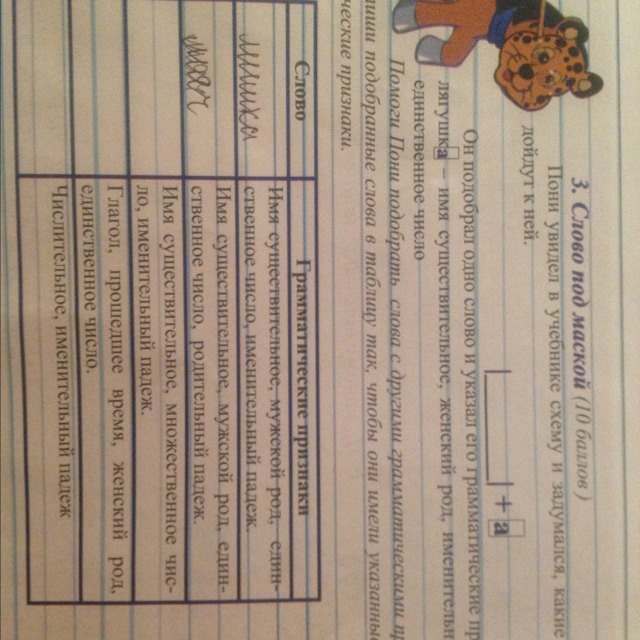 3. Слово под маской (10 баллов)
Пони увидел в учебнике схему и задумался, какие
дойдут к ней.
+ а
Он подобрал одно слово и указал его грамматические пр
лягушка – имя существительное, женский род, именительн
единственное число
Помоги Пони подобрать слова с другими грамматическими пр
пиши подобранные слова в таблицу так, чтобы они имели указанны
ческие признаки.
Слово
Грамматические признаки
Имя существительное, мужской род, един-
ственное число, именительный падеж.
Имя существительное, мужской род, един-
ственное число, родительный падеж.
Имя существительное, множественное чис-
ло, именительный падеж.
Глагол, прошедшее время, женский род,
единственное число.
Числительное, именительный падеж